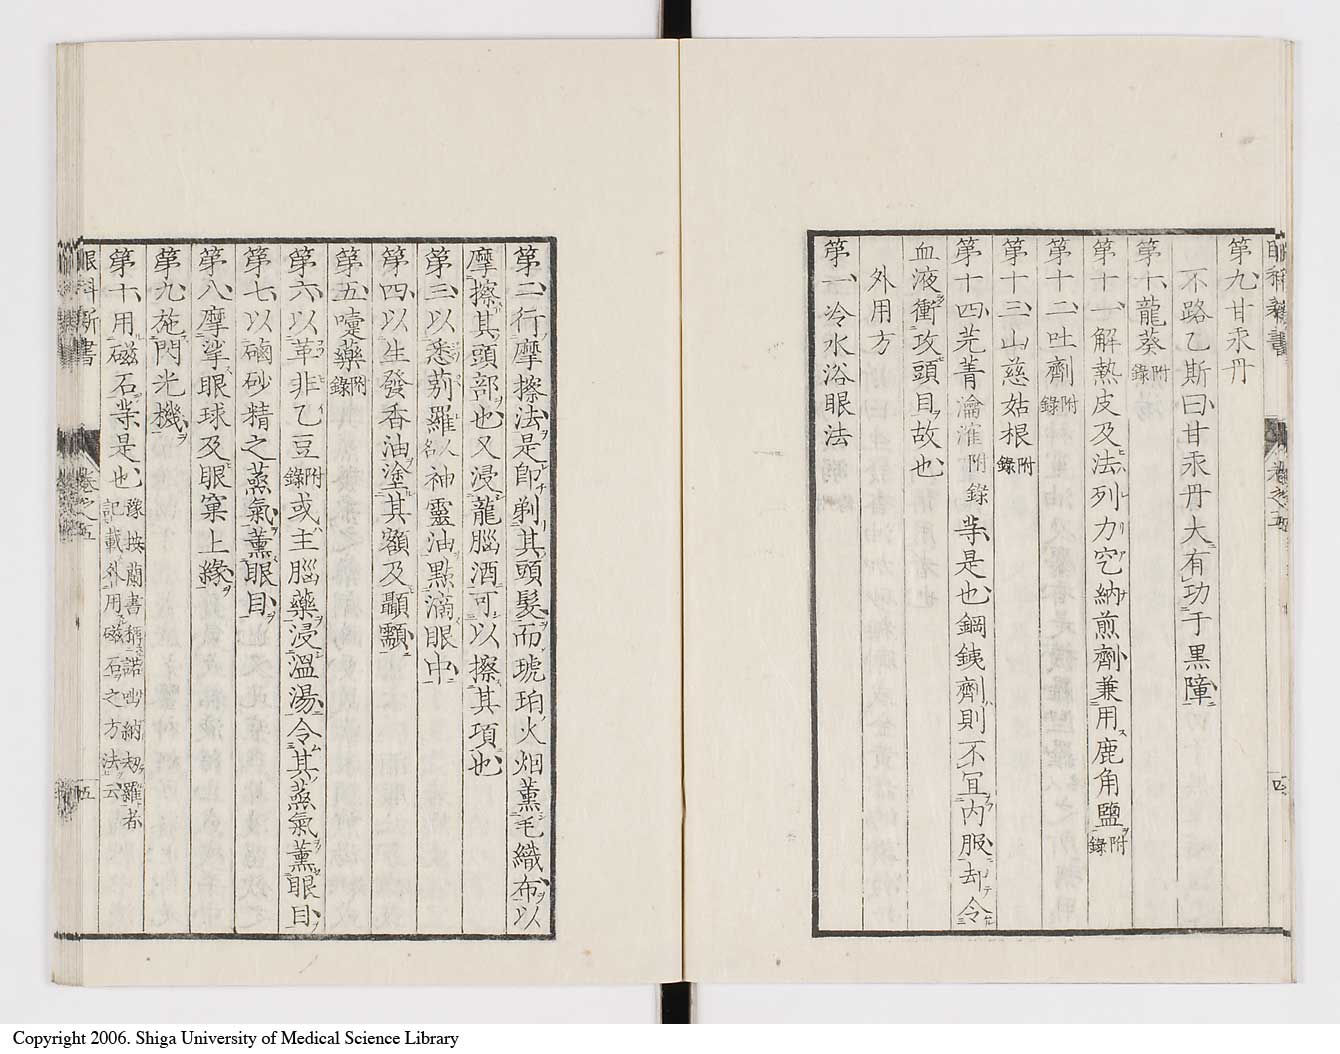 第九、甘汞丹
不路乙斯曰、甘汞丹大有功于黒障
第十、龍葵附錄
第十一、解熱皮及法列力究納煎劑兼用鹿角鹽附錄
第十二、吐劑附錄
第十三、山慈姑根附錄
第十四、芫菁瀹滙附錄 等是也、鋼鉄劑則不宜内服却令
血液衝攻頭目故也
外用方
第一、冷水浴眼法
眼科新書 卷之五
第二、行摩擦法是卽剃其頭髮而琥珀火烟薫毛織布以
摩擦其頭部也又浸龍腦酒可以擦其項也
第三、以悉荊羅以神靈油點滴眼中
第四、以生發香油塗其額及顳顬
第五、嚏藥附錄
第六、以革非乙豆附錄或主腦藥浸溫湯令其蒸氣薫眼目
第七、以磠砂精之蒸氣薫眼目
第八、摩挲眼球及眼窠上緣
第九、施閃光機
第十、用磁石等是也 豫按蘭書稱諾㕽納刼羅者
記載外用磁石之方法云
眼科新書 卷之五 五
Copyright 2006. Shiga University of Medical Science Library